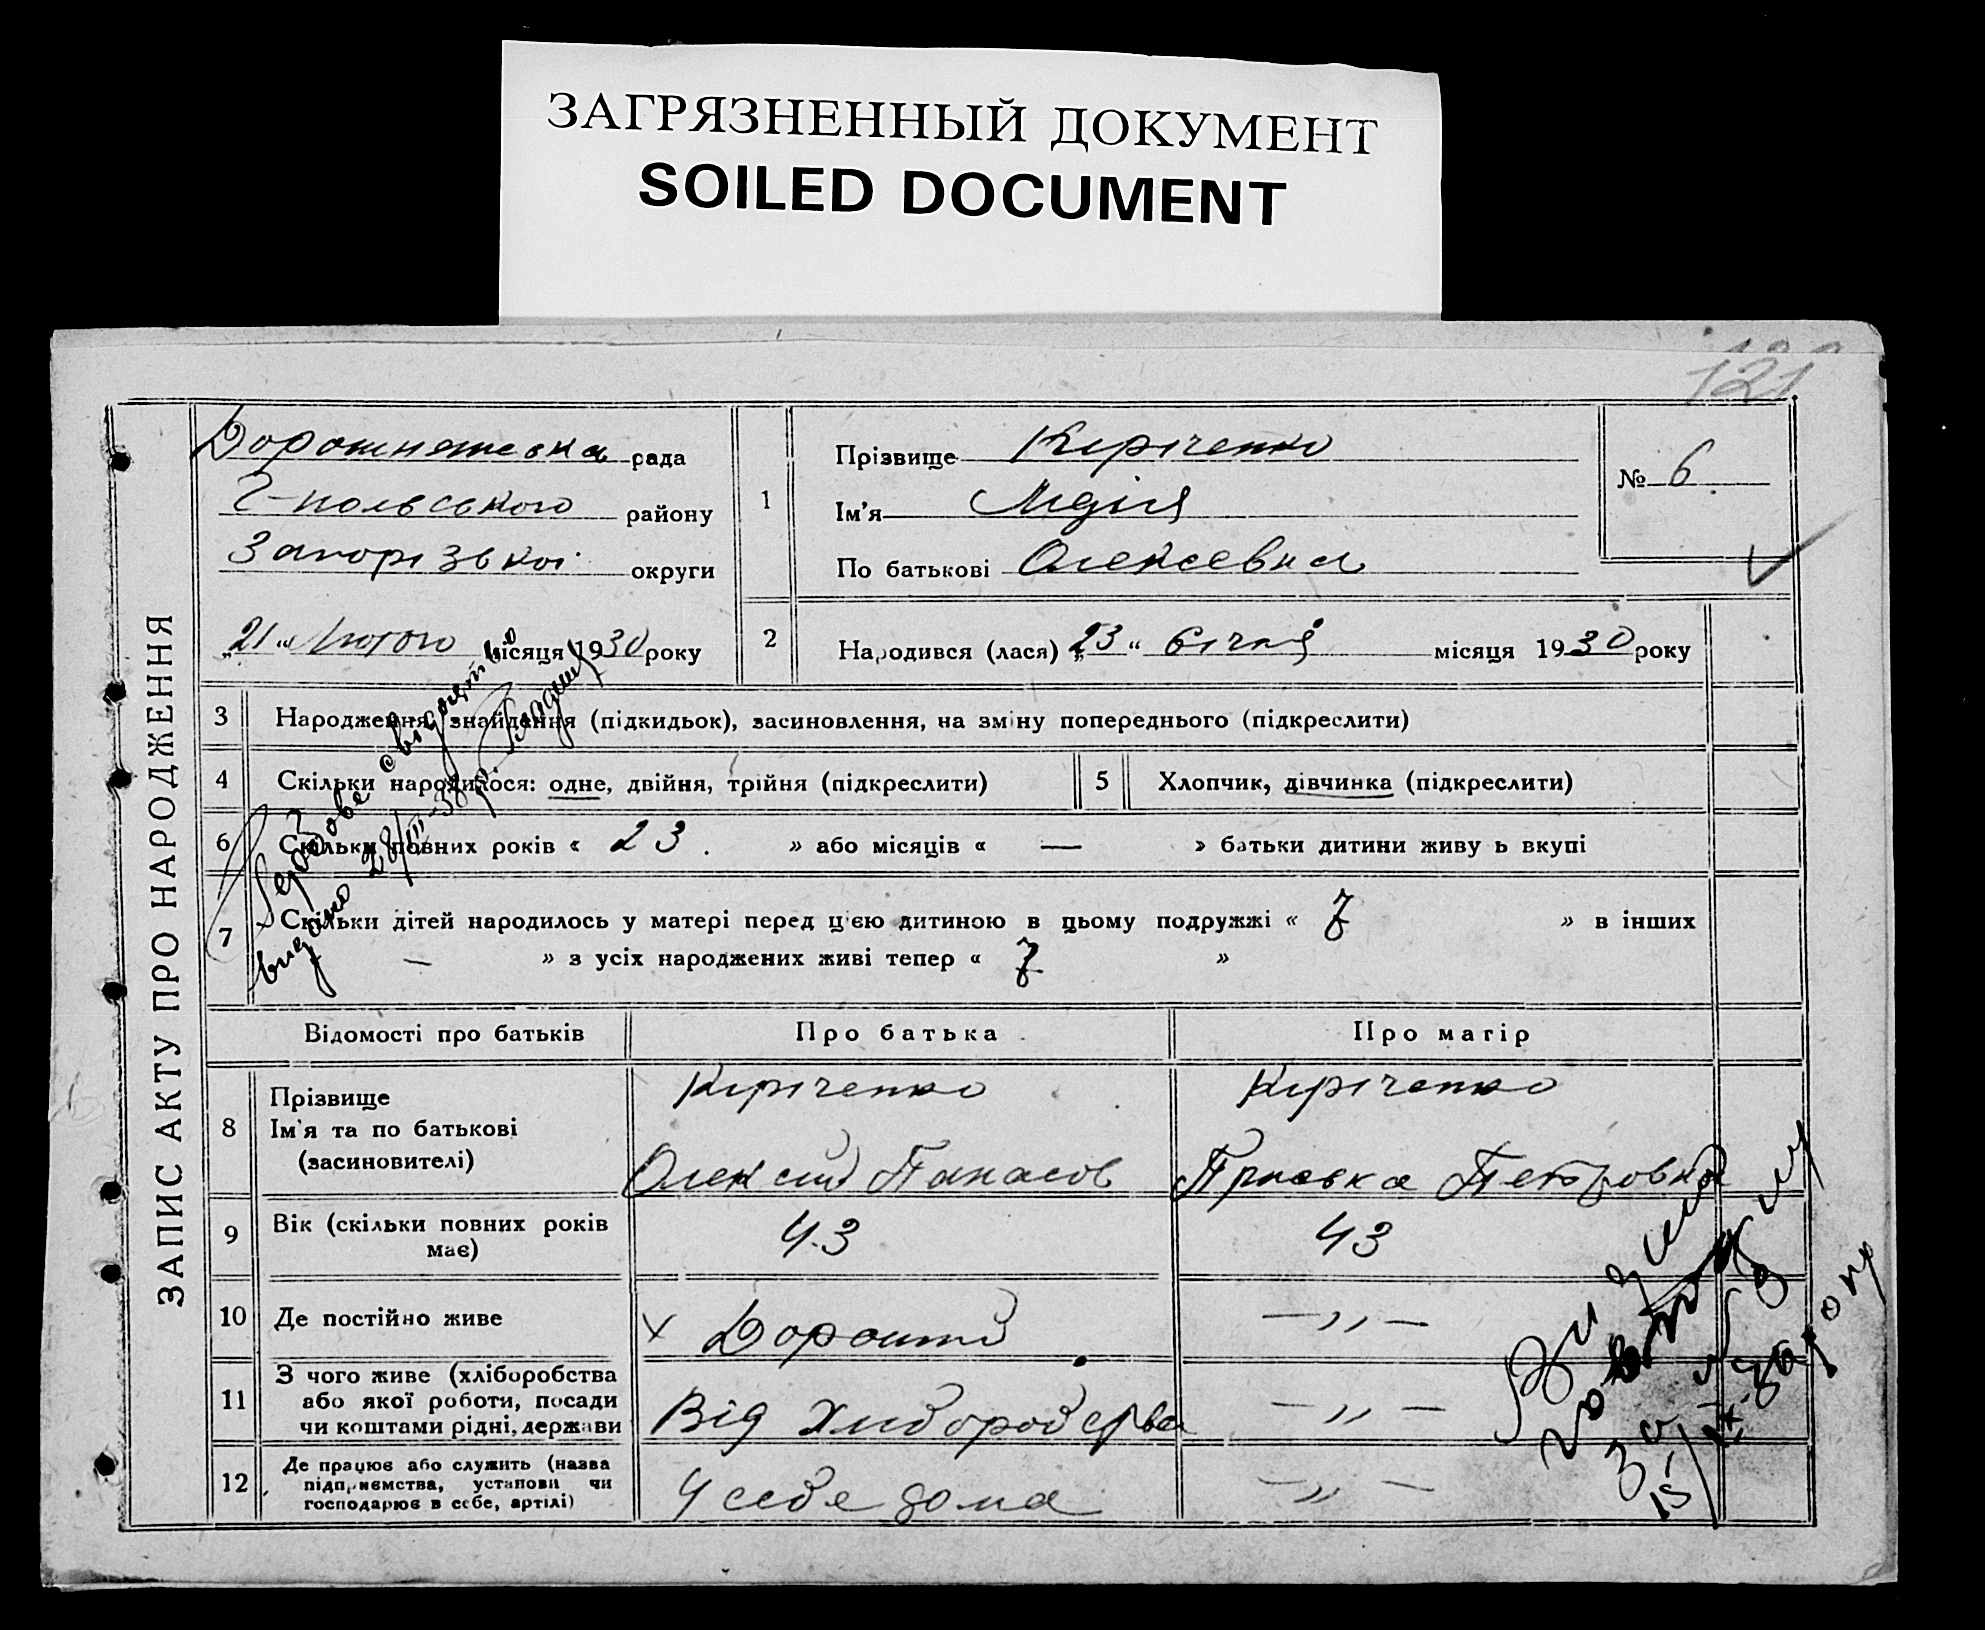 ЗАГРЯЗНЕННЫЙ ДОКУМЕНТ
SOILED DOCUMENT
121
ЗАПИС АКТУ ПРО НАРОДЖЕННЯ
рада
Г-польського району
Запорізької округи
„21“ Лютого місяця 1930 року
1
Прізвище Кіріченко
Ім'я Лідія
По батькові Олексевна
№ 6
2 Народився (лася) „23“ Січня місяця 1930 року
3 Народження, знайдення (підкидьок), засиновлення, на зміну попереднього (підкреслити)
4 Скільки народилося: одне, двійня, трійня (підкреслити)
5 Хлопчик, дівчинка (підкреслити)
6 Скільки повних років « 23 . » або місяців « — » батьки дитини живуть вкупі
7 Скільки дітей народилось у матері перед цією дитиною в цьому подружжі « 7 » в інших
— » з усіх народжених живі тепер « 7 »
видано 28/III-38р.
Відомості про батьків Про батька Про матір
8 Прізвище Кіріченко Кіріченко
Ім'я та по батькові
(засиновителі) Олексій Панасов Петровна
9 Вік (скільки повних років має) 43 43
10 Де постійно живе х — „ —
11 З чого живе (хліборобства
або якої роботи, посади
чи коштами рідні, держави Від — „ —
12 Де працює або служить (назва
підприємства, установи чи
господарює в себе, артілі) У себе дома — „ —